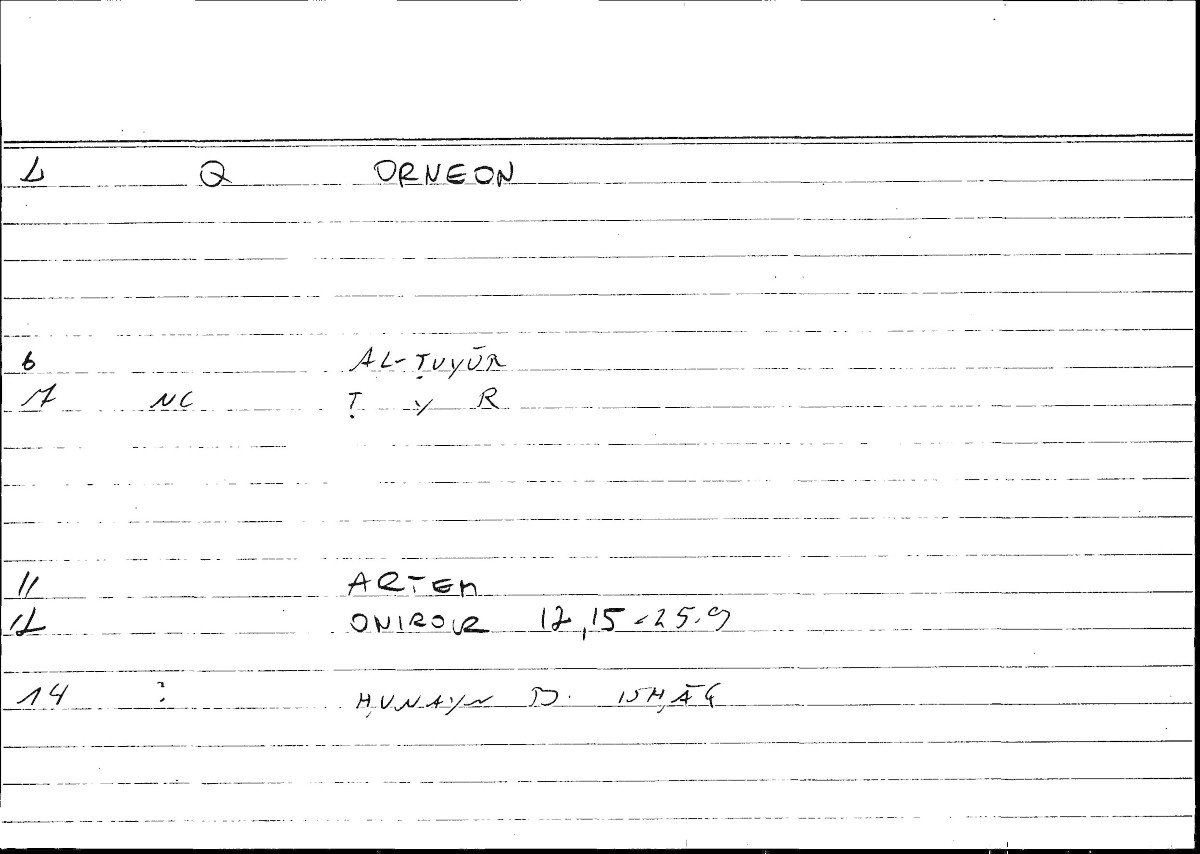 1 Q ORNEON
6 AL-ṬUYŪR
7 NC Ṭ Y R
11 ARTEM
12 ONIROCR 12,15 = 25.9
14 ? ḤUNAYN B. ISḤĀQ